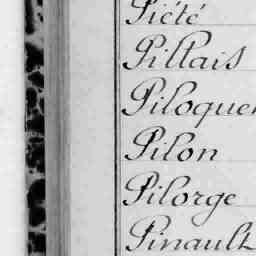 Piété
Pillais
Piloquen
Pilon
Pilorge
Pinault